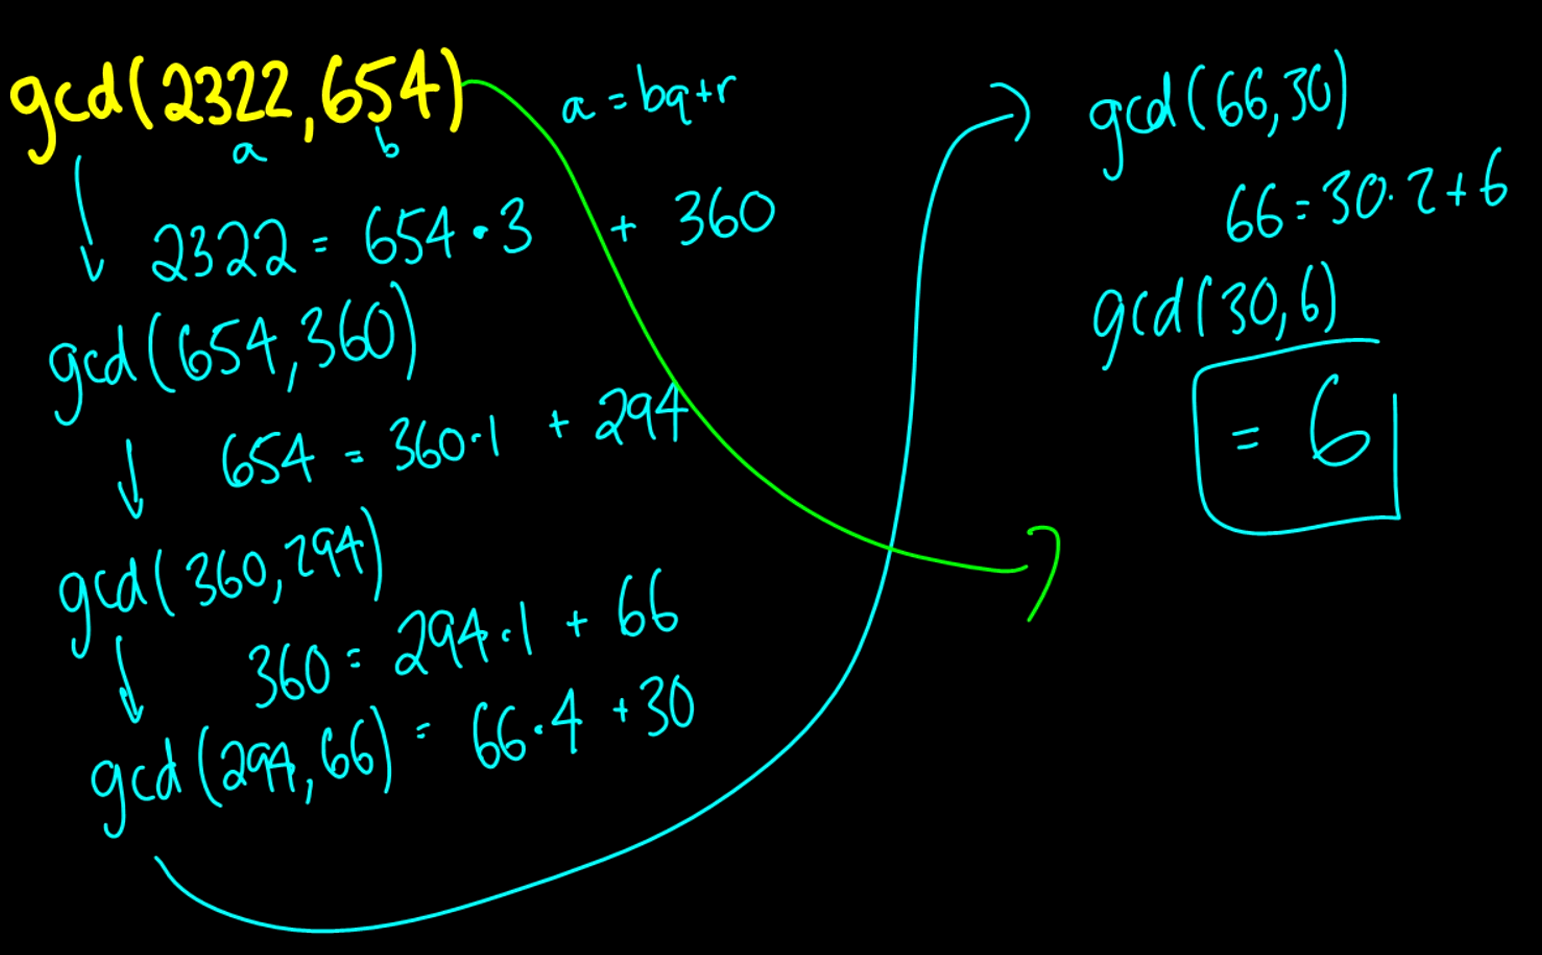 gcd(2322,654)
a b
a=bq+r
2322 = 654·3 + 360
gcd(654,360)
654 = 360·1 + 294
gcd(360,294)
360 = 294·1 + 66
gcd(294,66) = 66·4 +30
gcd(66,30)
66=30·2+6
gcd(30,6)
= 6